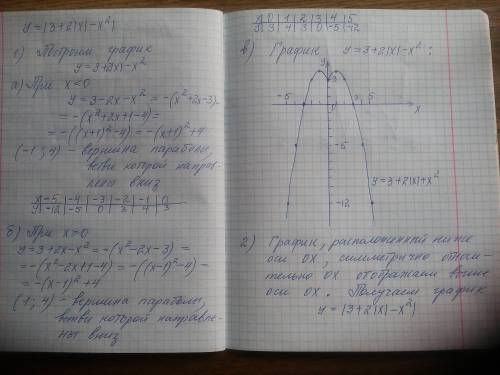 y = |3+2|x|-x²|
1) Построим график
y = 3+2|x|-x²
а) При x<0
y=3-2x-x² = -(x²+2x-3)=
= -(x²+2x+1-4)=
= -((x+1)²-4) = -(x+1)²+4
(-1; 4) - вершина параболы,
ветви которой направ-
лены вниз
x | -5 | -4 | -3 | -2 | -1 | 0
y | -12 | -5 | 0 | 3 | 4 | 3
б) При x≥0
y=3+2x-x² = -(x²-2x-3) =
= -(x²-2x+1-4) = -((x-1)²-4)=
= -(x-1)²+4
(1; 4) - вершина параболы,
ветви которой направле-
ны вниз
x | 0 | 1 | 2 | 3 | 4 | 5
y | 3 | 4 | 3 | 0 | -5 | -12
в) График y=3+2|x|-x²:
y
-5
5
x
-5
-12
y=3+2|x|+x²
2) График, расположенный ниже
оси OX, симметрично относи-
тельно OX отображаем выше
оси OX. Получаем график
y = |3+2|x|-x²|